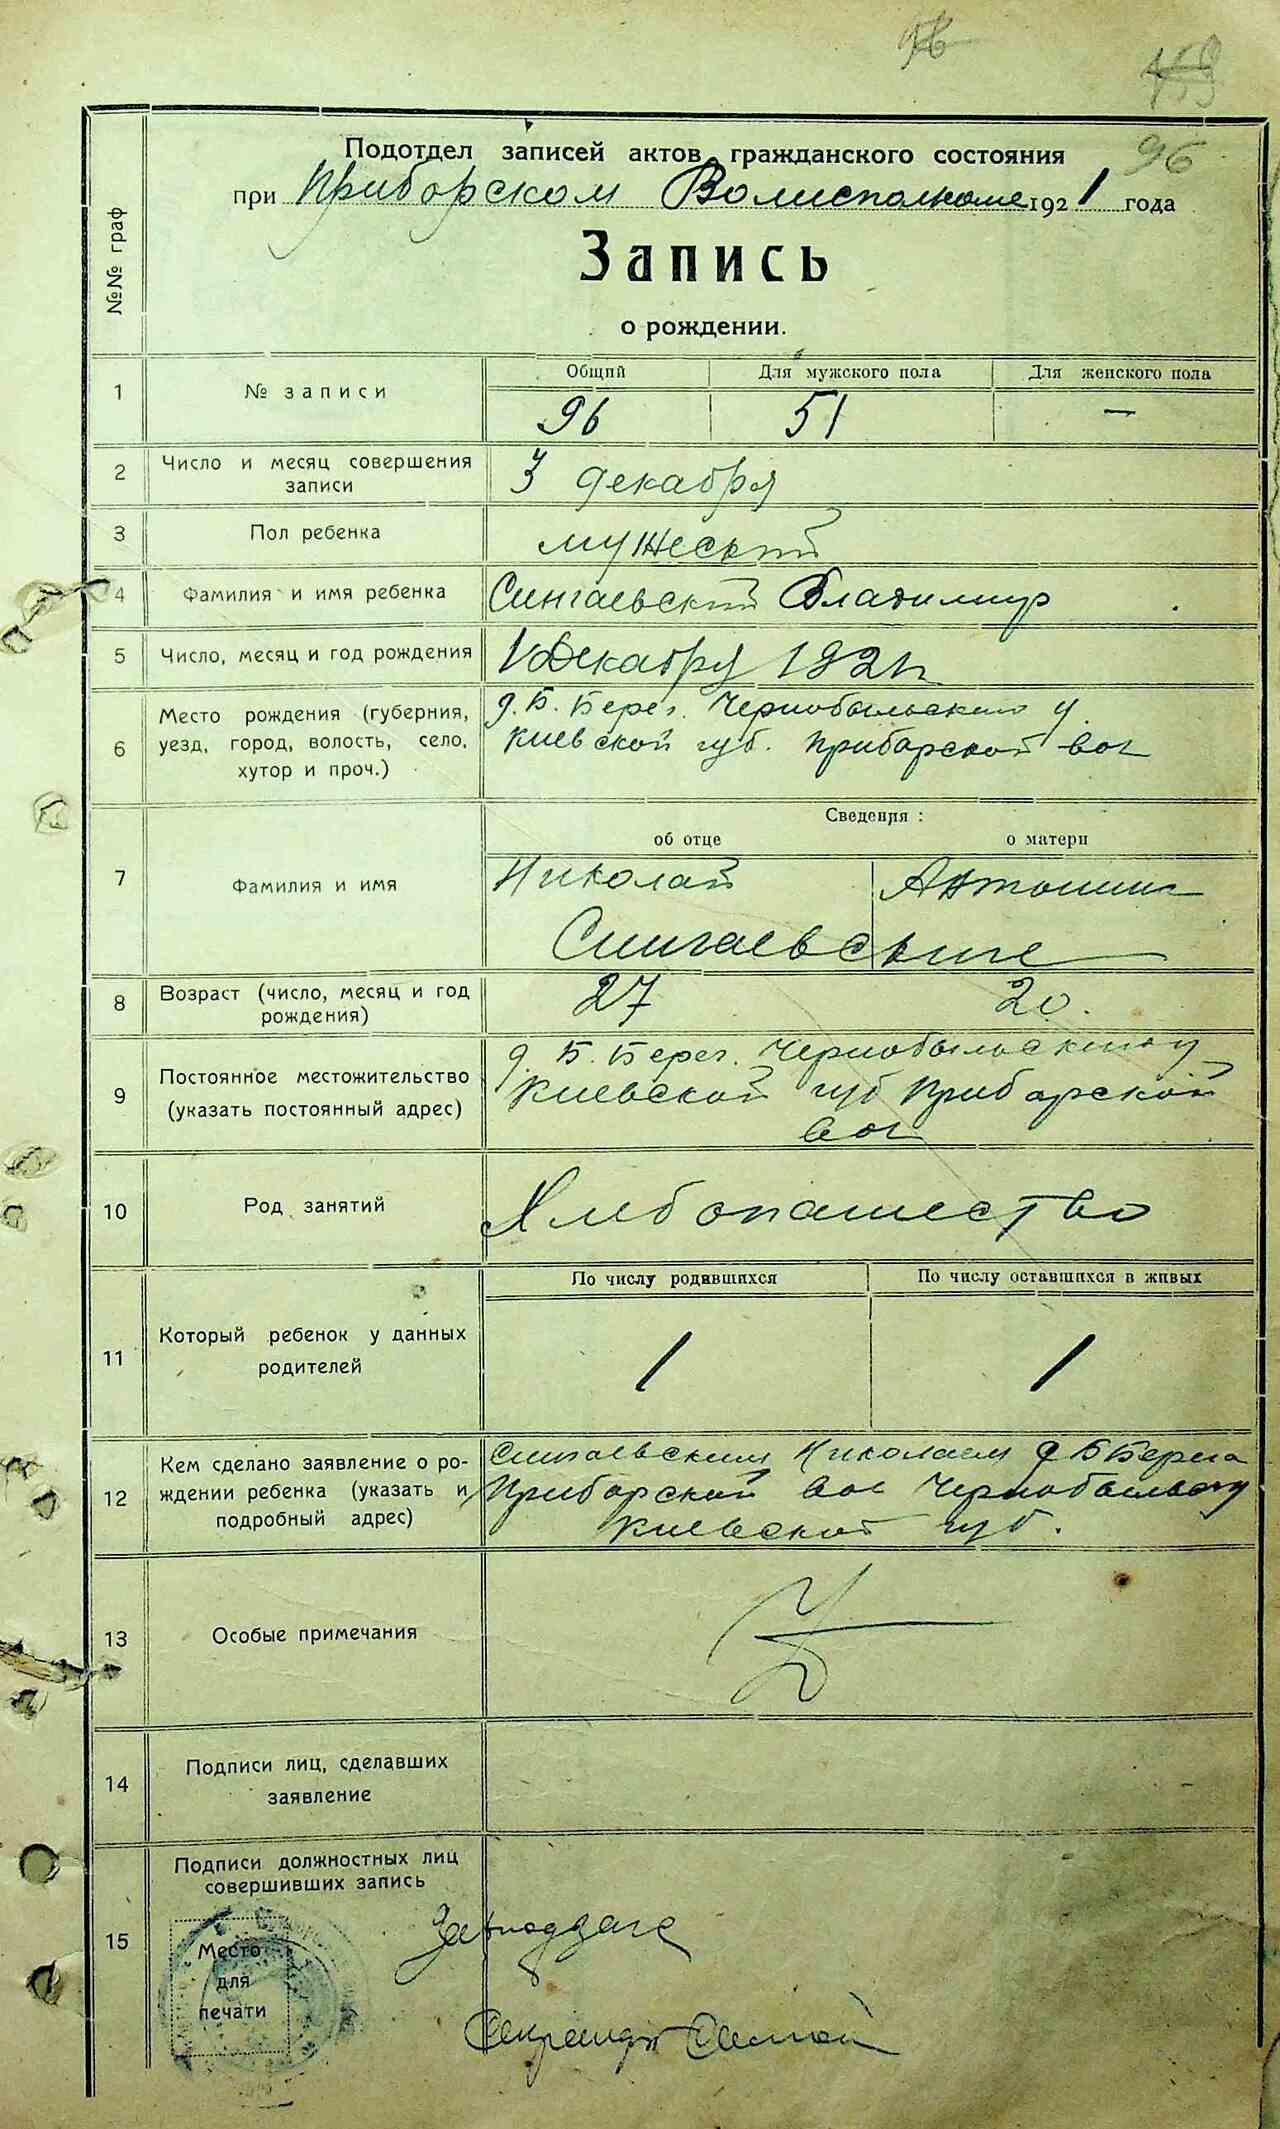 96
96
Подотдел записей актов гражданского состояния
при Приборском Волисполкоме 1921 года
Запись
о рождении.
№№ граф
Общий Для мужского пола Для женского пола
1 № записи 96 51 —
2 Число и месяц совершения записи 3 декабря
3 Пол ребенка мужеский
4 Фамилия и имя ребенка Сингаевский Владимир
5 Число, месяц и год рождения 1 Декабря 1921 г
6 Место рождения (губерния, уезд, город, волость, село, хутор и проч.)
д. Б. Берег. Чернобыльского у.
Киевской губ. Приборской вол
Сведения:
об отце о матери
7 Фамилия и имя Николай Антонина
Сингаевские
8 Возраст (число, месяц и год рождения) 27 20.
9 Постоянное местожительство (указать постоянный адрес)
д. Б. Берег. Чернобыльского у
Киевской губ Приборской
вол
10 Род занятий Хлебопашество
По числу родившихся По числу оставшихся в живых
11 Который ребенок у данных родителей 1 1
12 Кем сделано заявление о рождении ребенка (указать и подробный адрес)
Сингаевским Николаем д Б Берега
Приборской вол Чернобыльск у
Киевской губ.
13 Особые примечания
14 Подписи лиц, сделавших заявление
15 Подписи должностных лиц совершивших запись
Место
для
печати
Завподзагс
Секретарь